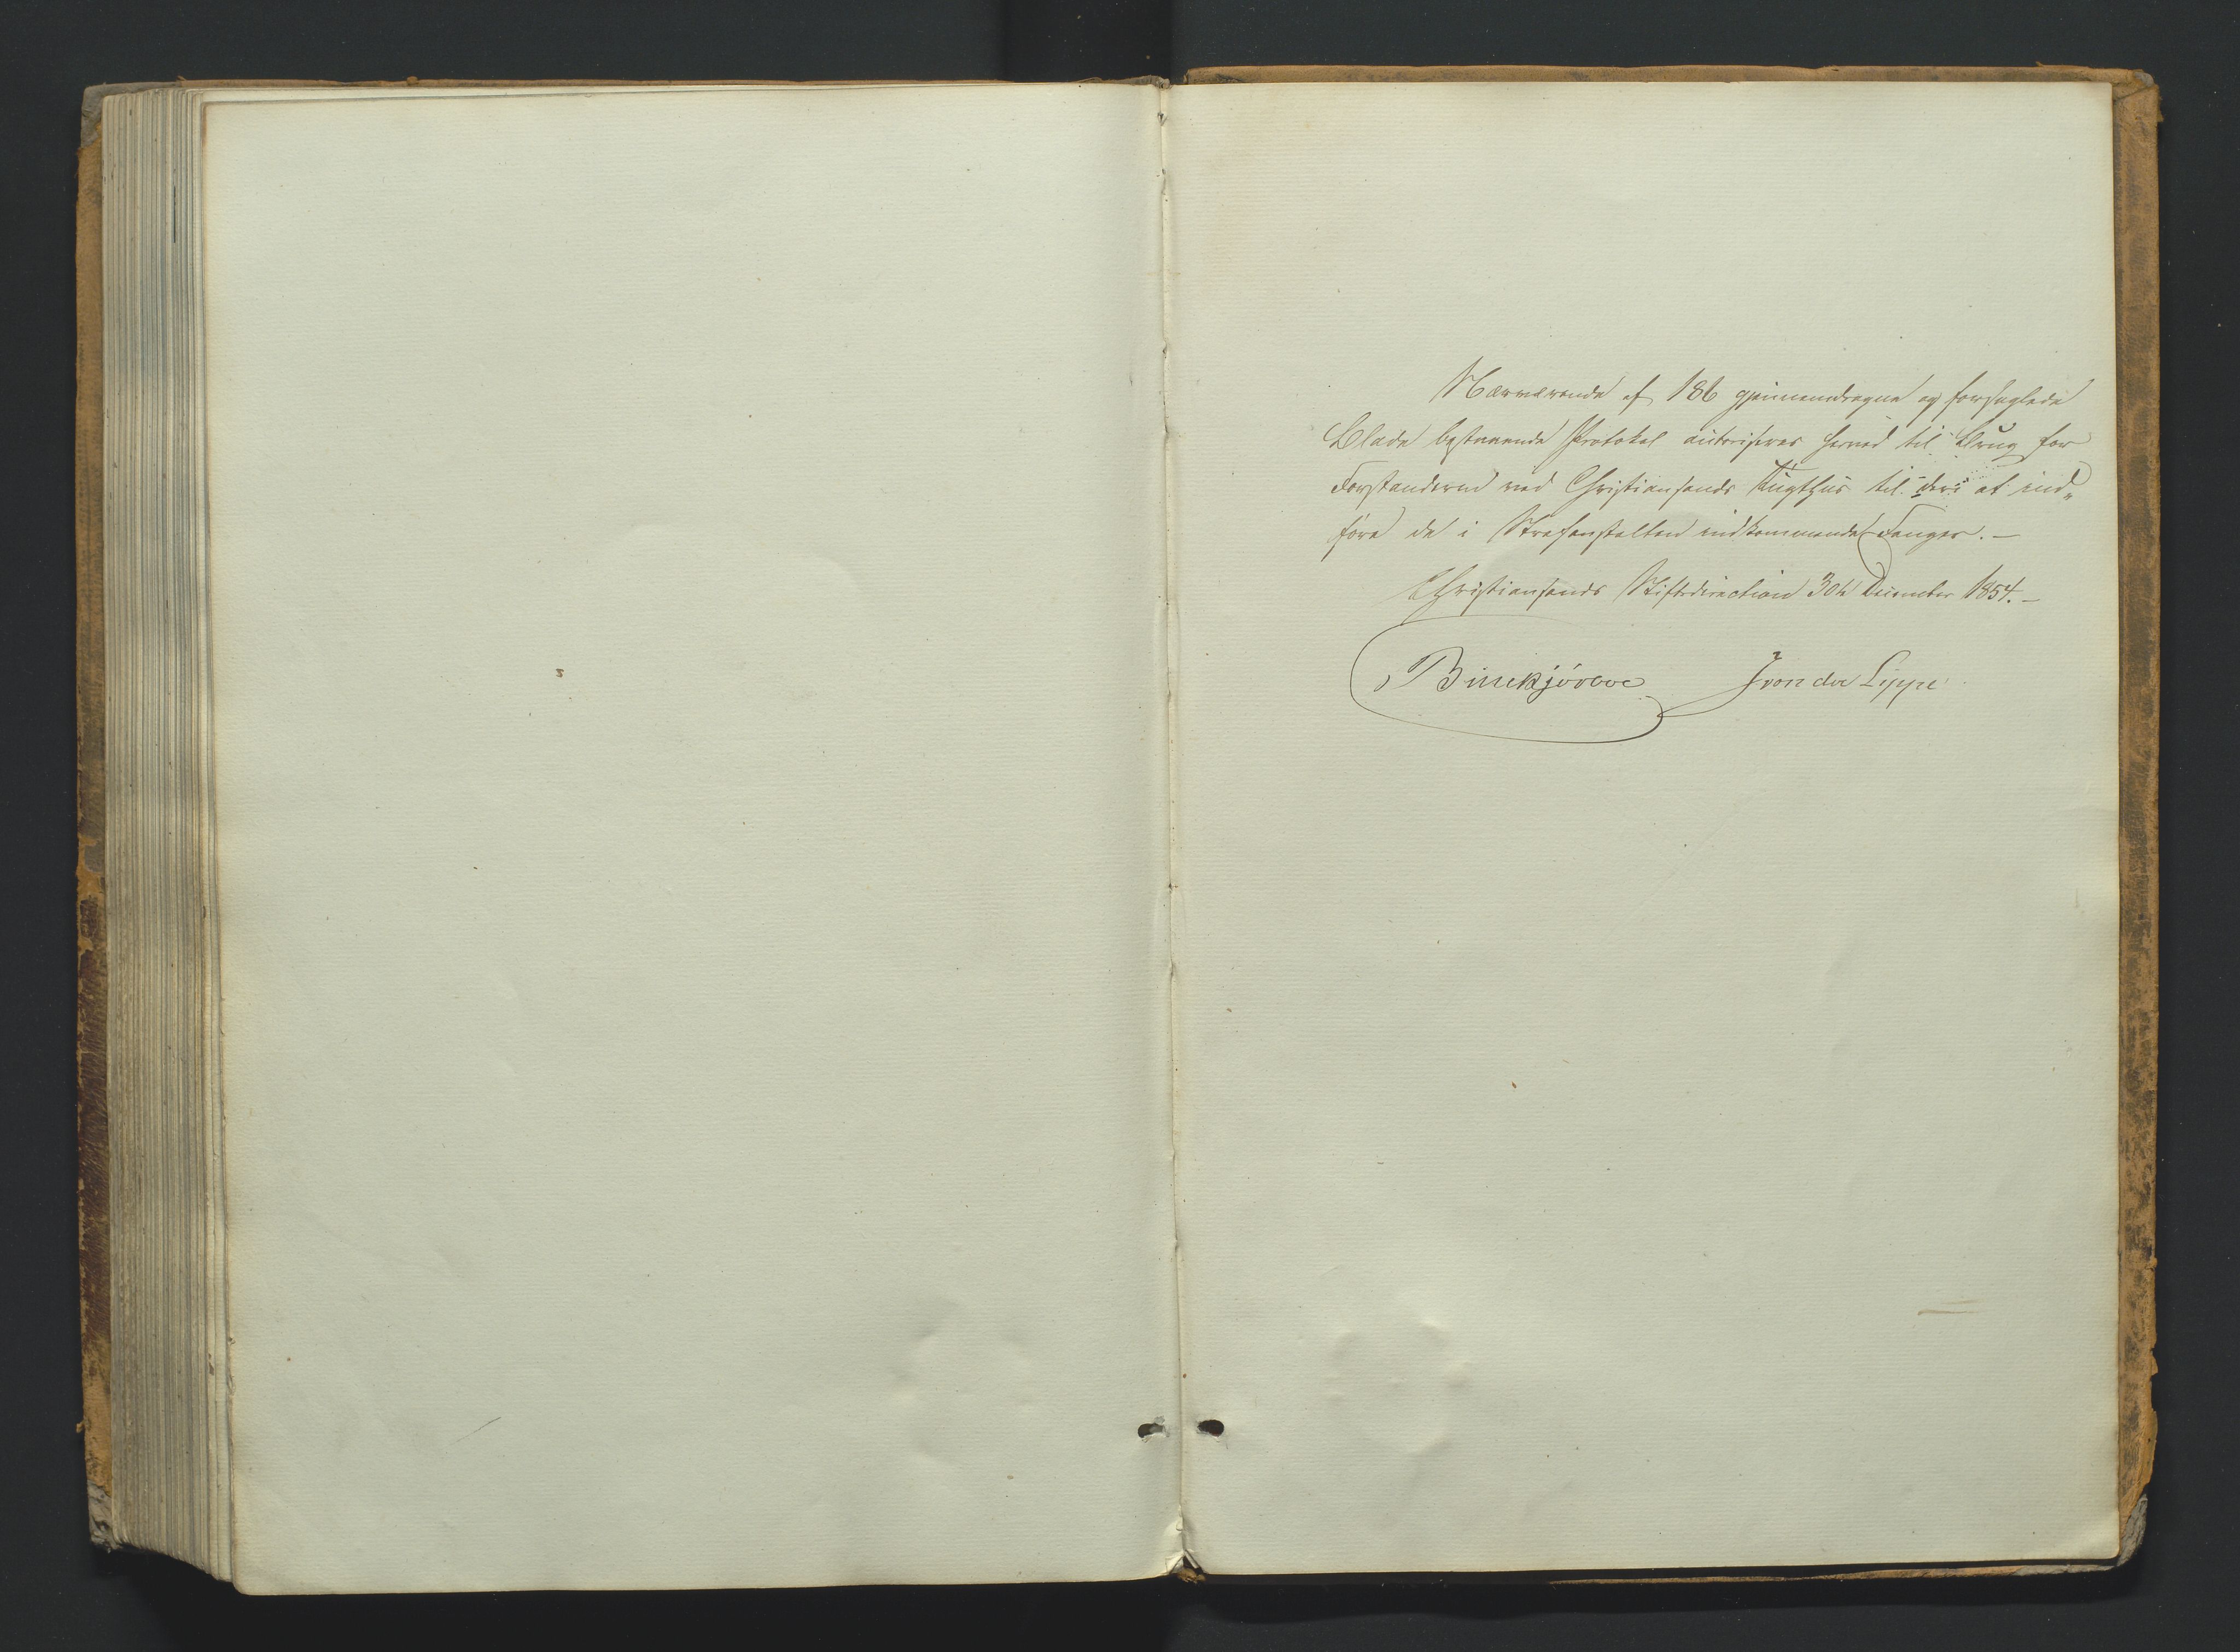 Nærværende af 186 gjennemdragne og forseglede
Blade bestaaende Protokol autoriseres herved til Brug for
Forstanderen ved Christiansands Tugthus til deri at ind„
føre de i Strafanstalten indkommende Fanger. —
Christiansands Stiftsdirection 30te December 1854. —
Birchjørove J von der Lippe